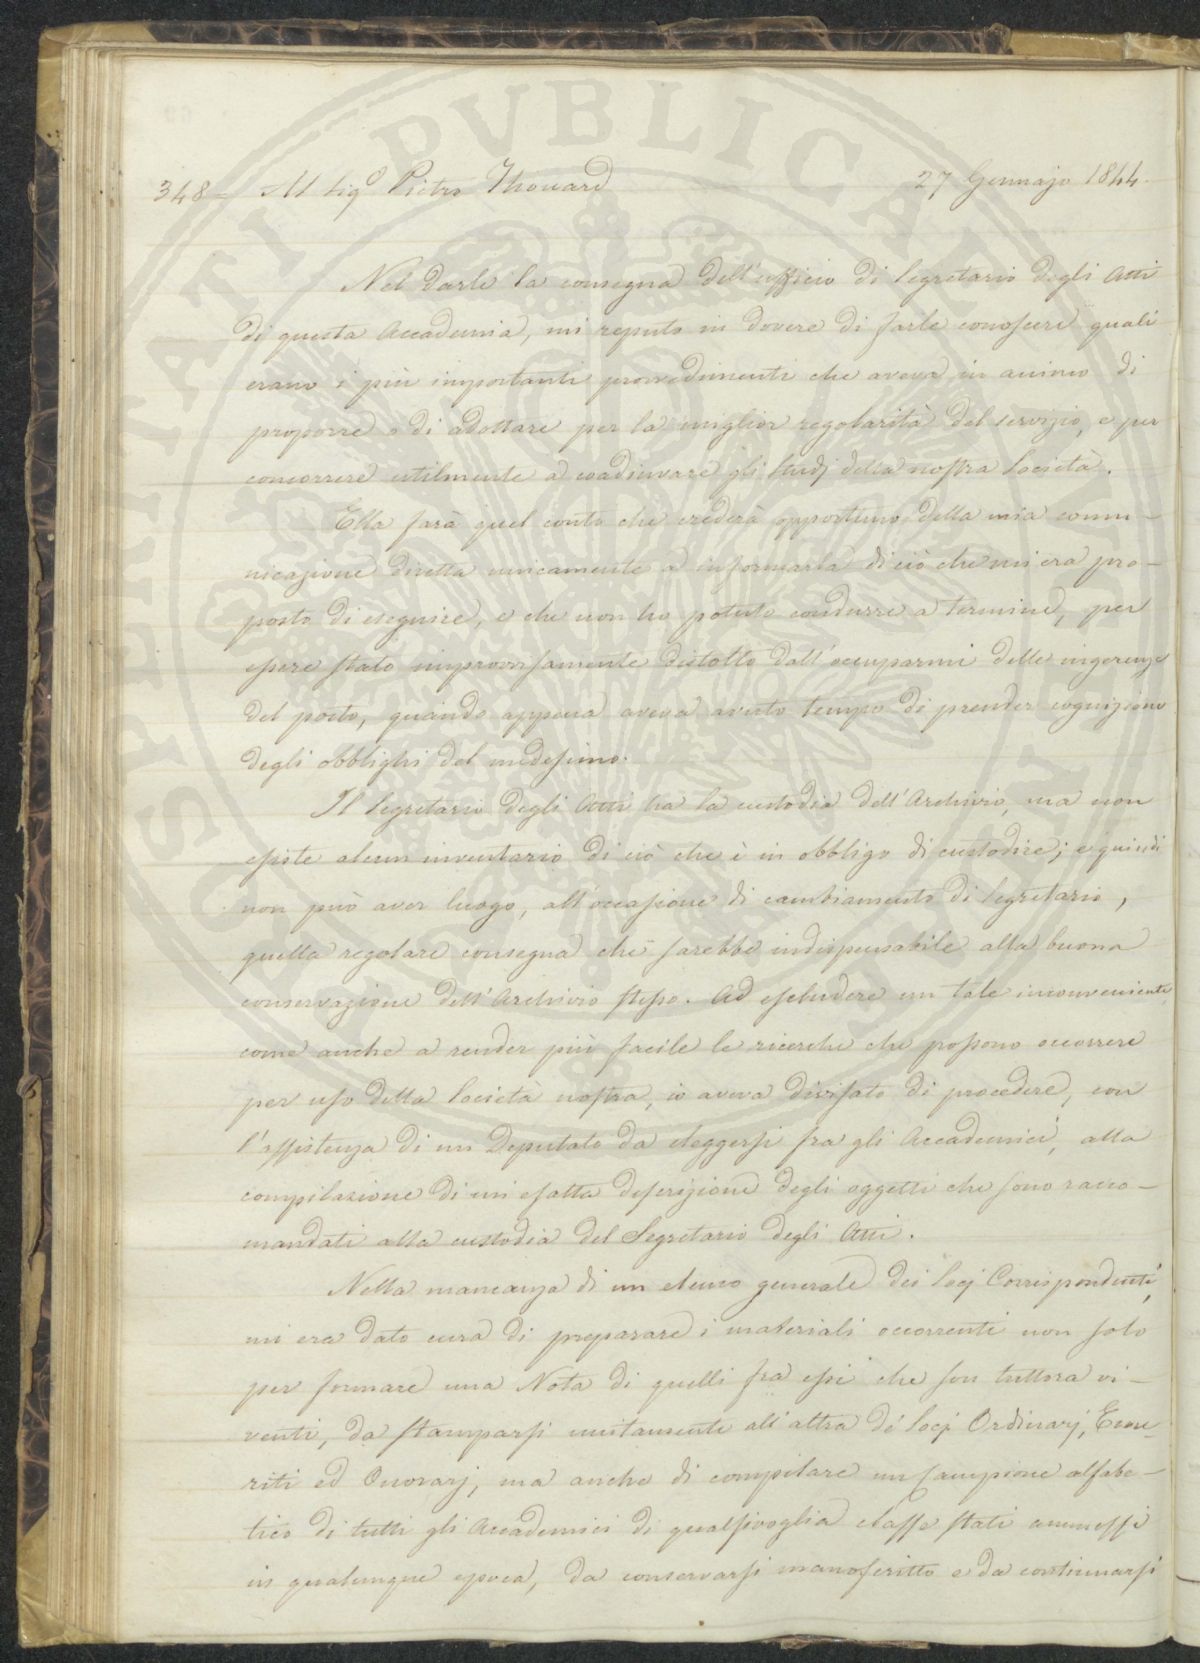 PROSPERITATI PVBLICAE AVGENDAE
348 – Al Sig.º Pietro Thouard 27 Gennajo 1844.
Nel darle la consegna dell'ufficio di Segretario degli Atti
di questa Accademia, mi reputo in dovere di farle conoscere quali
erano i più importanti provvedimenti che aveva in animo di
proporre o di adottare per la miglior regolarità del servizio, e per
concorrere utilmente a coadiuvare gli Studj della nostra Società.
Ella farà quel conto che crederà opportuno della mia comu-
nicazione diretta unicamente a informarla di ciò che mi era pro-
posto di eseguire, e che non ho potuto condurre a termine, per
essere stato improvvisamente distolto dall'occuparmi delle ingerenze
del posto, quando appena aveva avuto tempo di prender cognizione
degli obblighi del medesimo.
Il Segretario degli Atti ha la custodia dell'Archivio, ma non
esiste alcun inventario di ciò che è in obbligo di custodire; e quindi
non può aver luogo, all'occasione di cambiamento di Segretario,
quella regolare consegna che sarebbe indispensabile alla buona
conservazione dell'Archivio stesso. Ad escludere un tale inconveniente,
come anche a render più facile le ricerche che possono occorrere
per uso della Società nostra, io aveva divisato di procedere, con
l'assistenza di un Deputato da eleggersi fra gli Accademici, alla
compilazione di un'esatta descrizione degli oggetti che sono racco-
mandati alla custodia del Segretario degli Atti.
Nella mancanza di un elenco generale dei Socj Corrispondenti,
mi era dato cura di preparare i materiali occorrenti non solo
per formare una Nota di quelli fra essi che son tuttora vi-
venti, da stamparsi unitamente all'altra de' Socj Ordinarj, Eme-
riti ed Onorarj, ma anche di compilare un campione alfabe-
tico di tutti gli Accademici di qualsivoglia classe stati ammessi
in qualunque epoca, da conservarsi manoscritto e da continuarsi